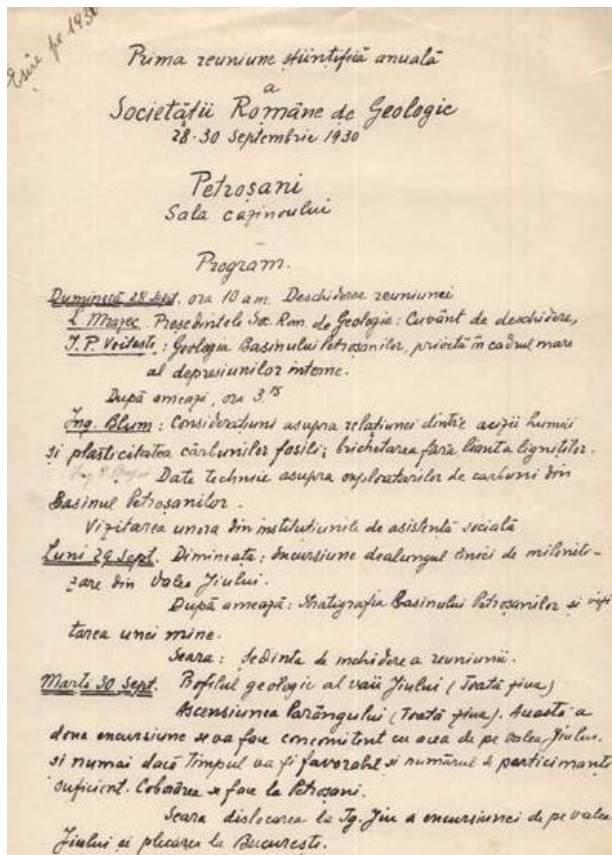 Esire pe 1930
Prima reuniune științifică anuală
a
Societății Române de Geologie
28-30 Septembrie 1930
Petroșani
Sala cazinoului
Program.
Duminecă 28 Sept. ora 10 a.m. Deschiderea reuniunei
L Mrazec Președintele Soc. Rom. de Geologie: Cuvânt de deschidere,
I. P. Voitești: Geologia Basinului Petroșanilor, privită în cadrul mare
al depresiunilor interne.
După ameazi, ora 3.15
Ing. Blum: Considerațiuni asupra relațiunei dintre acizii humici
și plasticitatea cărbunilor fosili; brichetarea fără liant a lignitelor.
Date technice asupra exploatărilor de carbuni din
Basinul Petroșanilor.
Vizitarea unora din instituțiunile de asistență socială
Luni 29 Sept. Dimineața: excursiune dealungul liniei de
zare din Valea Jiului.
După amează: Stratigrafia Basinului Petroșanilor și vizi
tarea unei mine.
Seara: ședința de inchidere a reuniunii.
Marți 30 Sept. Profilul geologic al văii Jiului (Toată ziua)
Ascensiunea Parângului (Toată ziua). Aceasta a
doua encursiune se va face concomitent cu acea de pe valea Jiului.
și numai dacă timpul va fi favorabil și numărul de participanți
suficient. Coborârea se face la Petroșani.
Seara dislocarea la Tg. Jiu a excursiunei de pe valea
Jiului și plecarea la București.